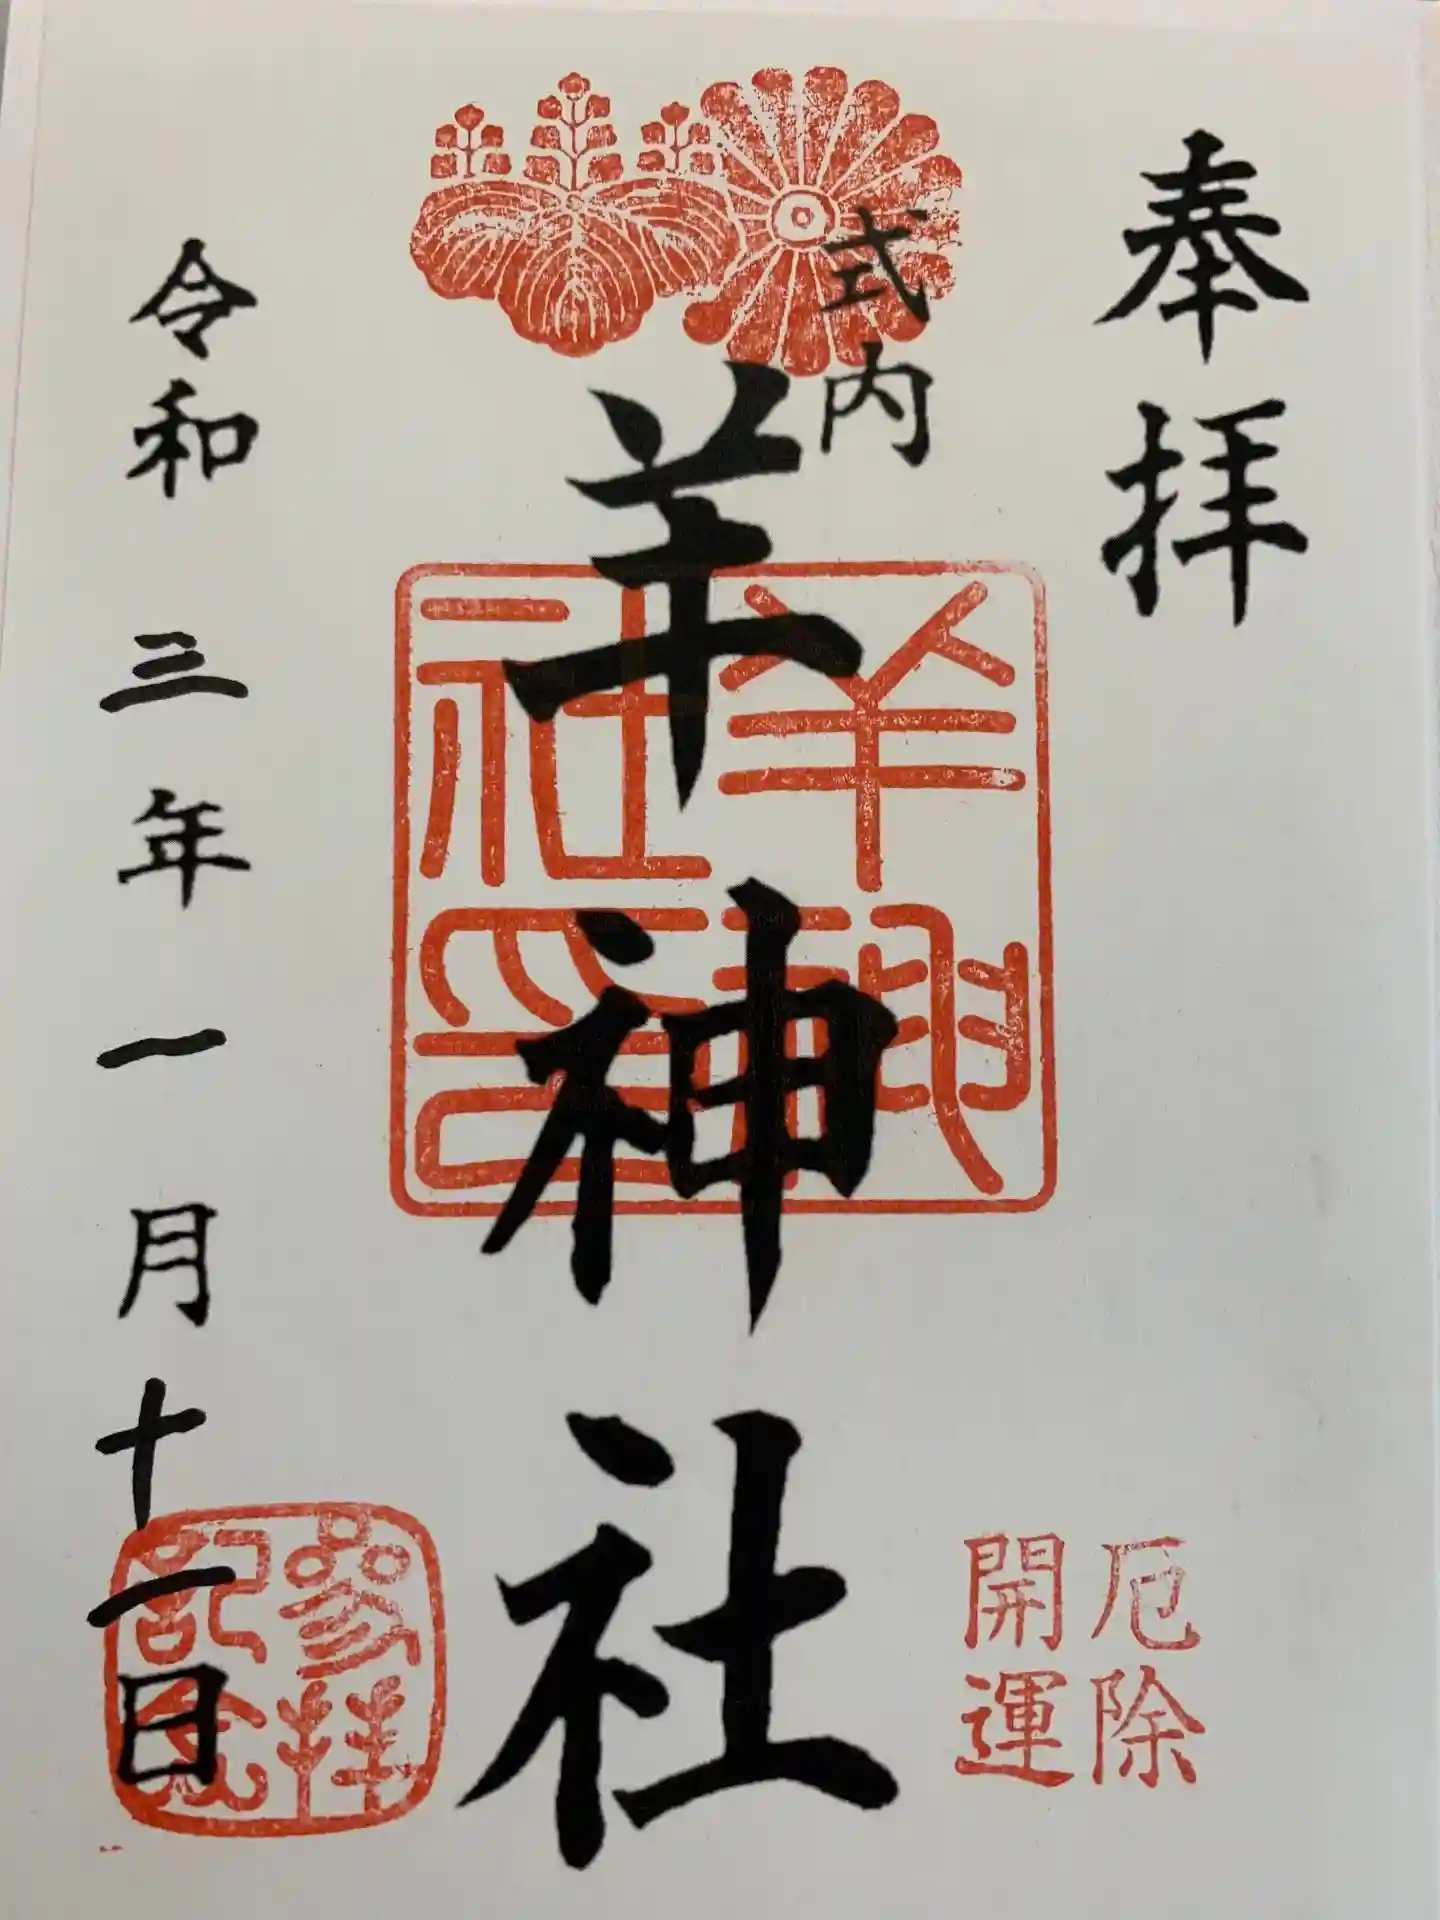 奉拝
厄除
開運
式内
羊神社
羊神社印
令和三年一月十一日
参拝記念